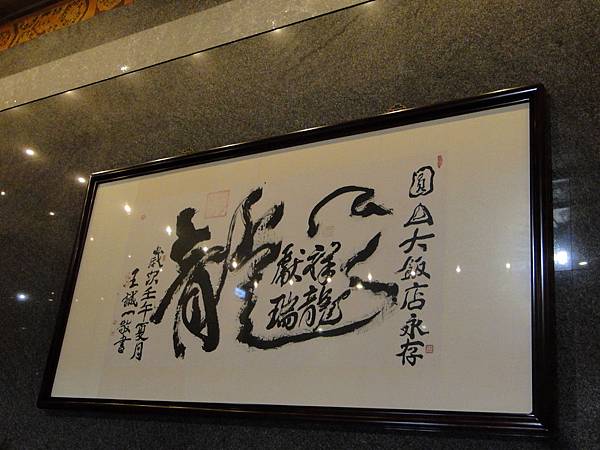 圓山大飯店永存
龍
祥龍
獻瑞
歲次壬午夏月
汪誠一敬書